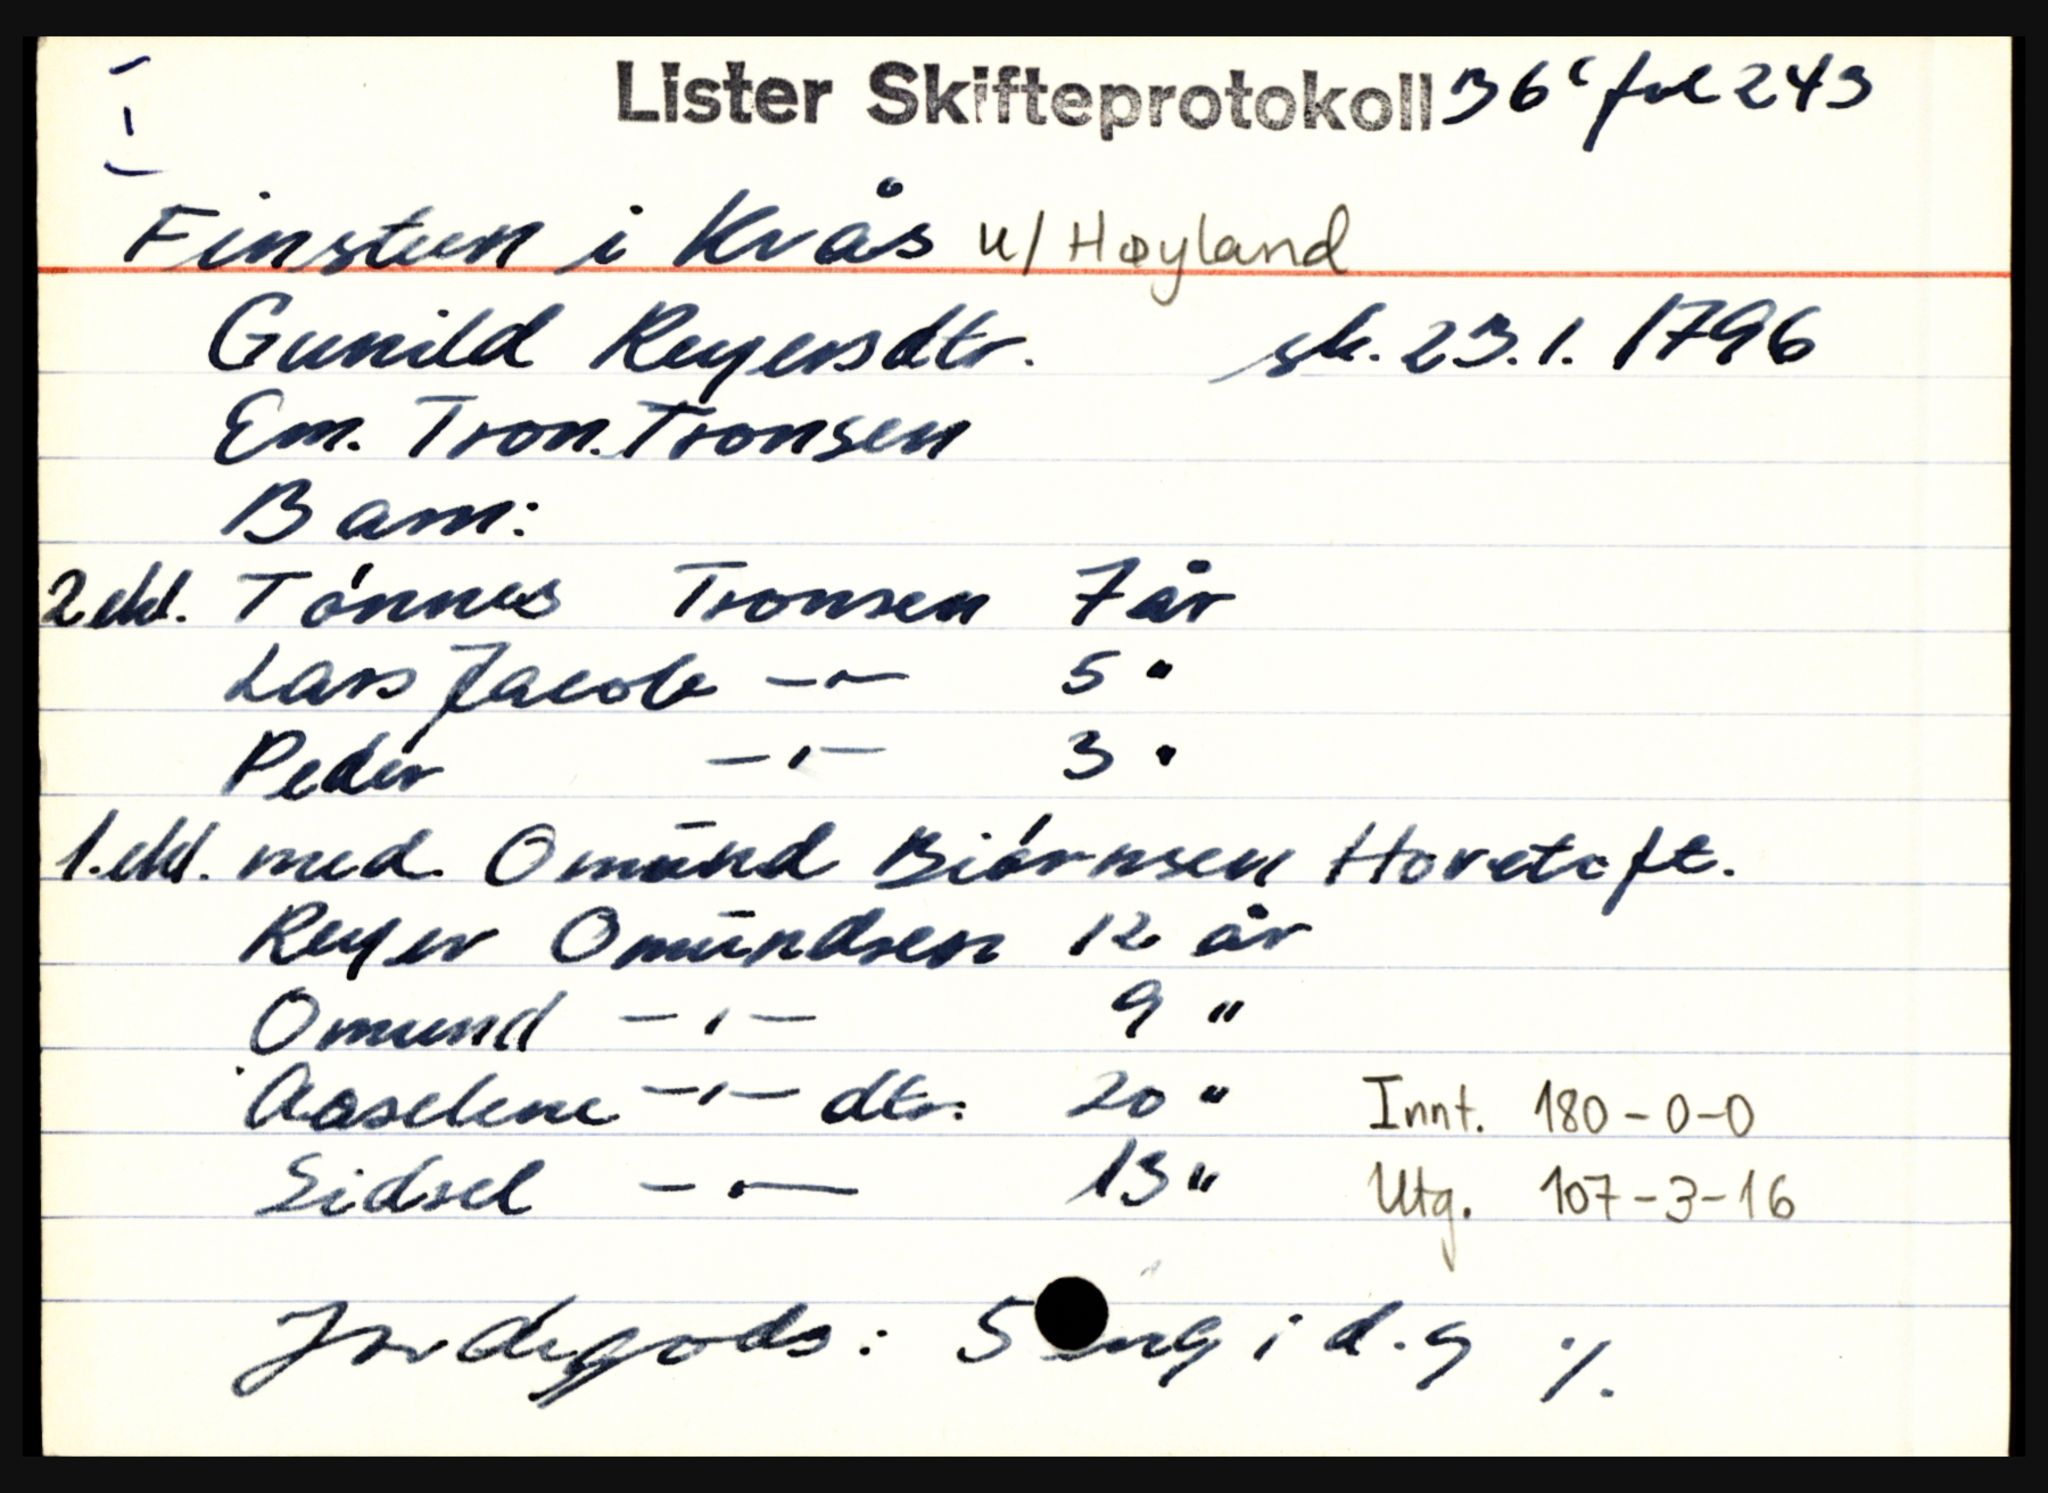 Lister Skifteprotokoll B 6c fol 243
I
Finsteen i Kvås u/ Høyland
Gunild Reyersdtr. sk. 23.1.1796
Em. Tron. Tronsen
Barn:
2 ekt. Tónnes Tronsen 7 år
Lars Jacob —"— 5 "
Peder —"— 3 "
1. ekt. med. Omund Biórnsen
Reyer Omundsen 12 år
Omund —"— 9 "
Aaselene —"— dtr. 20 " Innt. 180-0-0
Sidsel —"— 13 " Utg. 107-3-16
Jordegods: 5 eng i d.g ./.